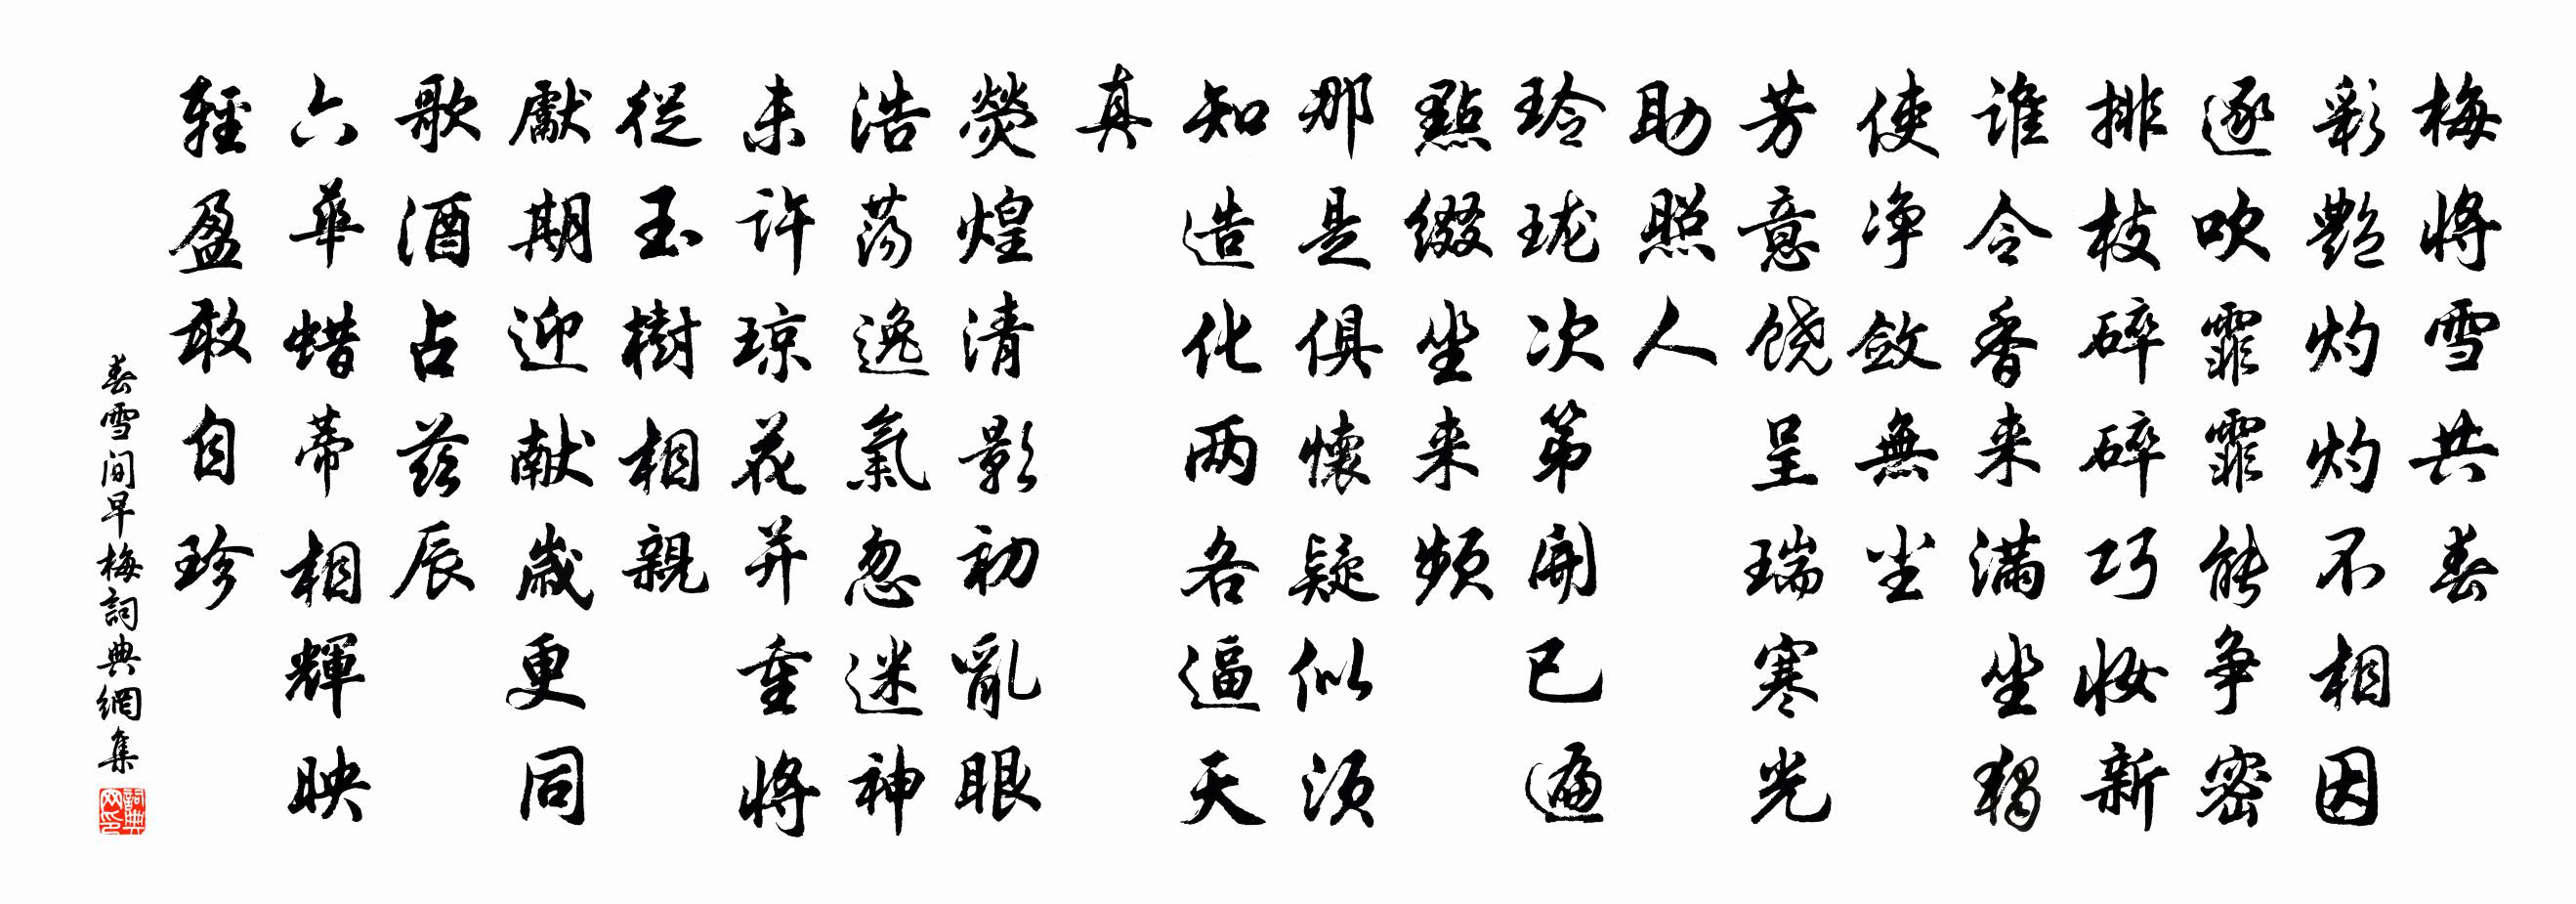 梅將雪共春
彩艷灼灼不相因
逐吹霏霏能争密
排枝碎碎巧妆新
谁令香来滿坐獨
使净斂無尘
芳意饒呈瑞寒光
助照人
玲珑次第開已遍
點綴坐来頻
那是俱懷疑似須
知造化两各逼天
真
熒煌清影初亂眼
浩蕩逸氣忽迷神
未許琼花并重將
從玉樹相親
獻期迎献歲更同
歌酒占兹辰
六華蜡蒂相輝映
輕盈敢自珍
春雪间早梅詞典網集
詞典网印